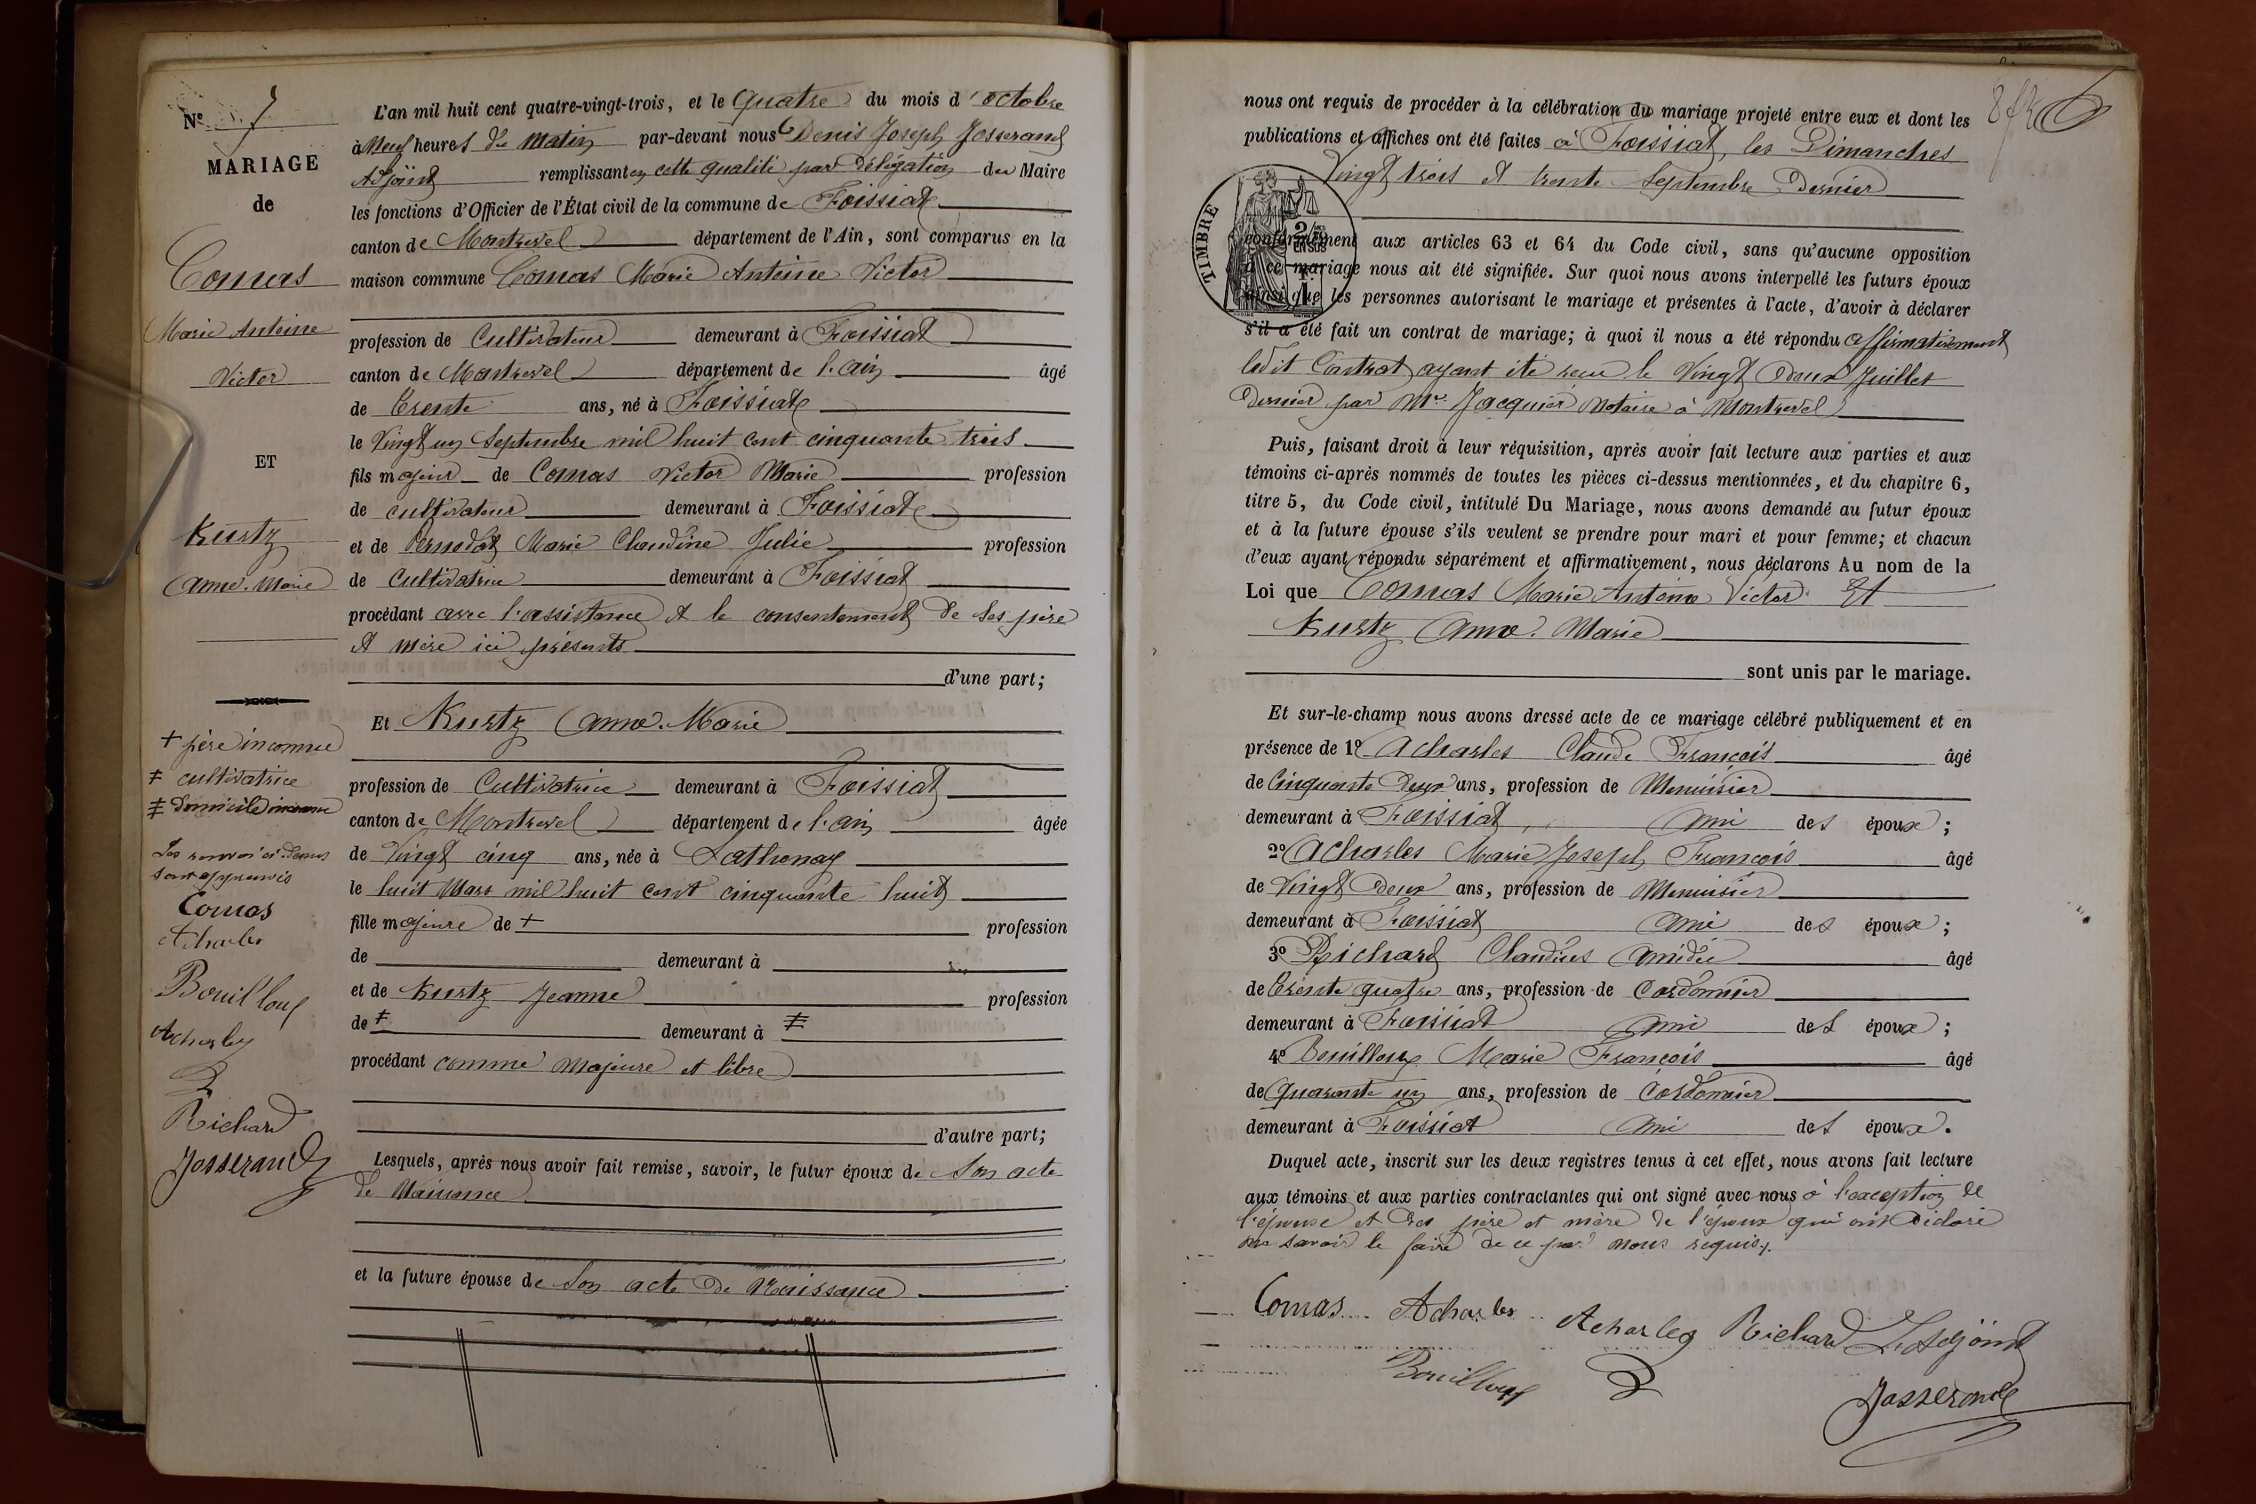 Nº 7
MARIAGE
de
Comas
Marie Antoine
Victor
ET
Kurtz
Anne-Marie
+ père inconnu
≠ cultivatrice
≢ domicile inconnu
Les renvois ci-dessus
sont approuvés
Comas
Acharles
Bouilloux
Acharles
Richard
Josserand
L'an mil huit cent quatre-vingt-trois, et le Quatre du mois d'octobre
à Neuf heures du Matin par-devant nous Denis Joseph Josserand
Adjoint remplissant en cette qualité par Délégation du Maire
les fonctions d'Officier de l'État civil de la commune de Foissiat
canton de Montrevel département de l'Ain, sont comparus en la
maison commune Comas Marie Antoine Victor
profession de Cultivateur demeurant à Foissiat
canton de Montrevel département de l'ain âgé
de Trente ans, né à Foissiat
le Vingt un Septembre mil huit cent cinquante trois
fils majeur de Comas Victor Marie profession
de cultivateur demeurant à Foissiat
et de Marie Claudine Julie profession
de Cultivatrice demeurant à Foissiat
procédant avec l'assistance et le consentement de ses père
et mère ici présents
d'une part;
Et Kurtz Anne-Marie
profession de Cultivatrice demeurant à Foissiat
canton de Montrevel département de l'ain âgée
de Vingt cinq ans, née à Lathenay
le huit Mars mil huit cent cinquante huit
fille majeure de + profession
de demeurant à
et de Kurtz Jeanne profession
de ≠ demeurant à ≢
procédant comme majeure et libre
d'autre part;
Lesquels, après nous avoir fait remise, savoir, le futur époux de Son acte
de Naissance
et la future épouse de Son acte de Naissance
nous ont requis de procéder à la célébration du mariage projeté entre eux et dont les
publications et affiches ont été faites à Foissiat, les Dimanches
Vingt trois et trente Septembre Dernier
TIMBRE
conformément aux articles 63 et 64 du Code civil, sans qu'aucune opposition
à ce mariage nous ait été signifiée. Sur quoi nous avons interpellé les futurs époux
ainsi que les personnes autorisant le mariage et présentes à l'acte, d'avoir à déclarer
s'il a été fait un contrat de mariage; à quoi il nous a été répondu affirmativement
ledit Contrat ayant été reçu le Vingt Deux Juillet
Dernier par Me Jacquier Notaire à Montrevel
Puis, faisant droit à leur réquisition, après avoir fait lecture aux parties et aux
témoins ci-après nommés de toutes les pièces ci-dessus mentionnées, et du chapitre 6,
titre 5, du Code civil, intitulé Du Mariage, nous avons demandé au futur époux
et à la future épouse s'ils veulent se prendre pour mari et pour femme; et chacun
d'eux ayant répondu séparément et affirmativement, nous déclarons Au nom de la
Loi que Comas Marie Antoine Victor Et
Kurtz Anne-Marie
sont unis par le mariage.
Et sur-le-champ nous avons dressé acte de ce mariage célébré publiquement et en
présence de 1º Acharles Claude François âgé
de Cinquante Deux ans, profession de Menuisier
demeurant à Foissiat Ami des époux;
2º Acharles Marie Joseph François âgé
de Vingt Deux ans, profession de Menuisier
demeurant à Foissiat Ami des époux;
3º Richard Claudius Amédée âgé
de Trente quatre ans, profession de Cordonnier
demeurant à Foissiat Ami des époux;
4º Bouilloux Marie François âgé
de Quarante un ans, profession de Cordonnier
demeurant à Foissiat Ami des époux.
Duquel acte, inscrit sur les deux registres tenus à cet effet, nous avons fait lecture
aux témoins et aux parties contractantes qui ont signé avec nous à l'exception de
l'épouse et des père et mère de l'époux qui ont déclaré
ne savoir le faire de ce par nous requis.
Comas Acharles Acharles Richard L'adjoint
Bouilloux
Josserand